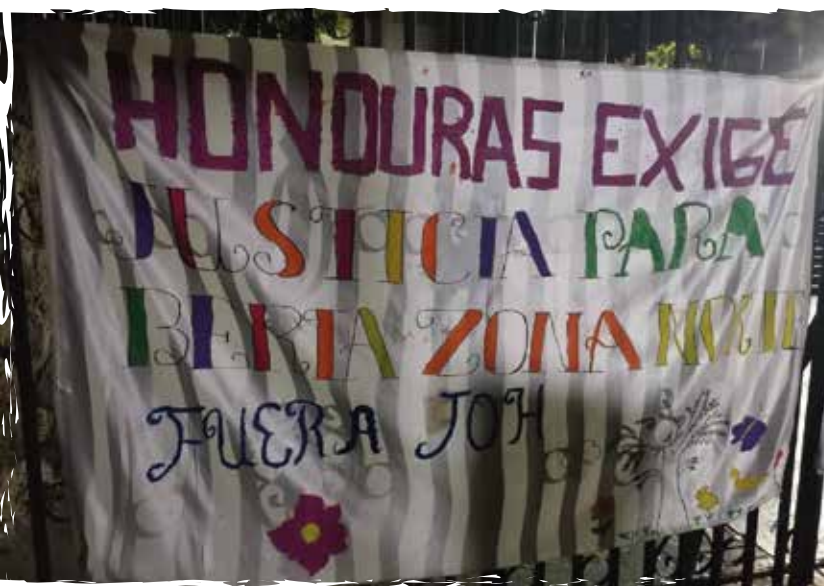 HONDURAS EXIGE
JUSTICIA PARA
BERTA ZONA NORTE
FUERA JOH